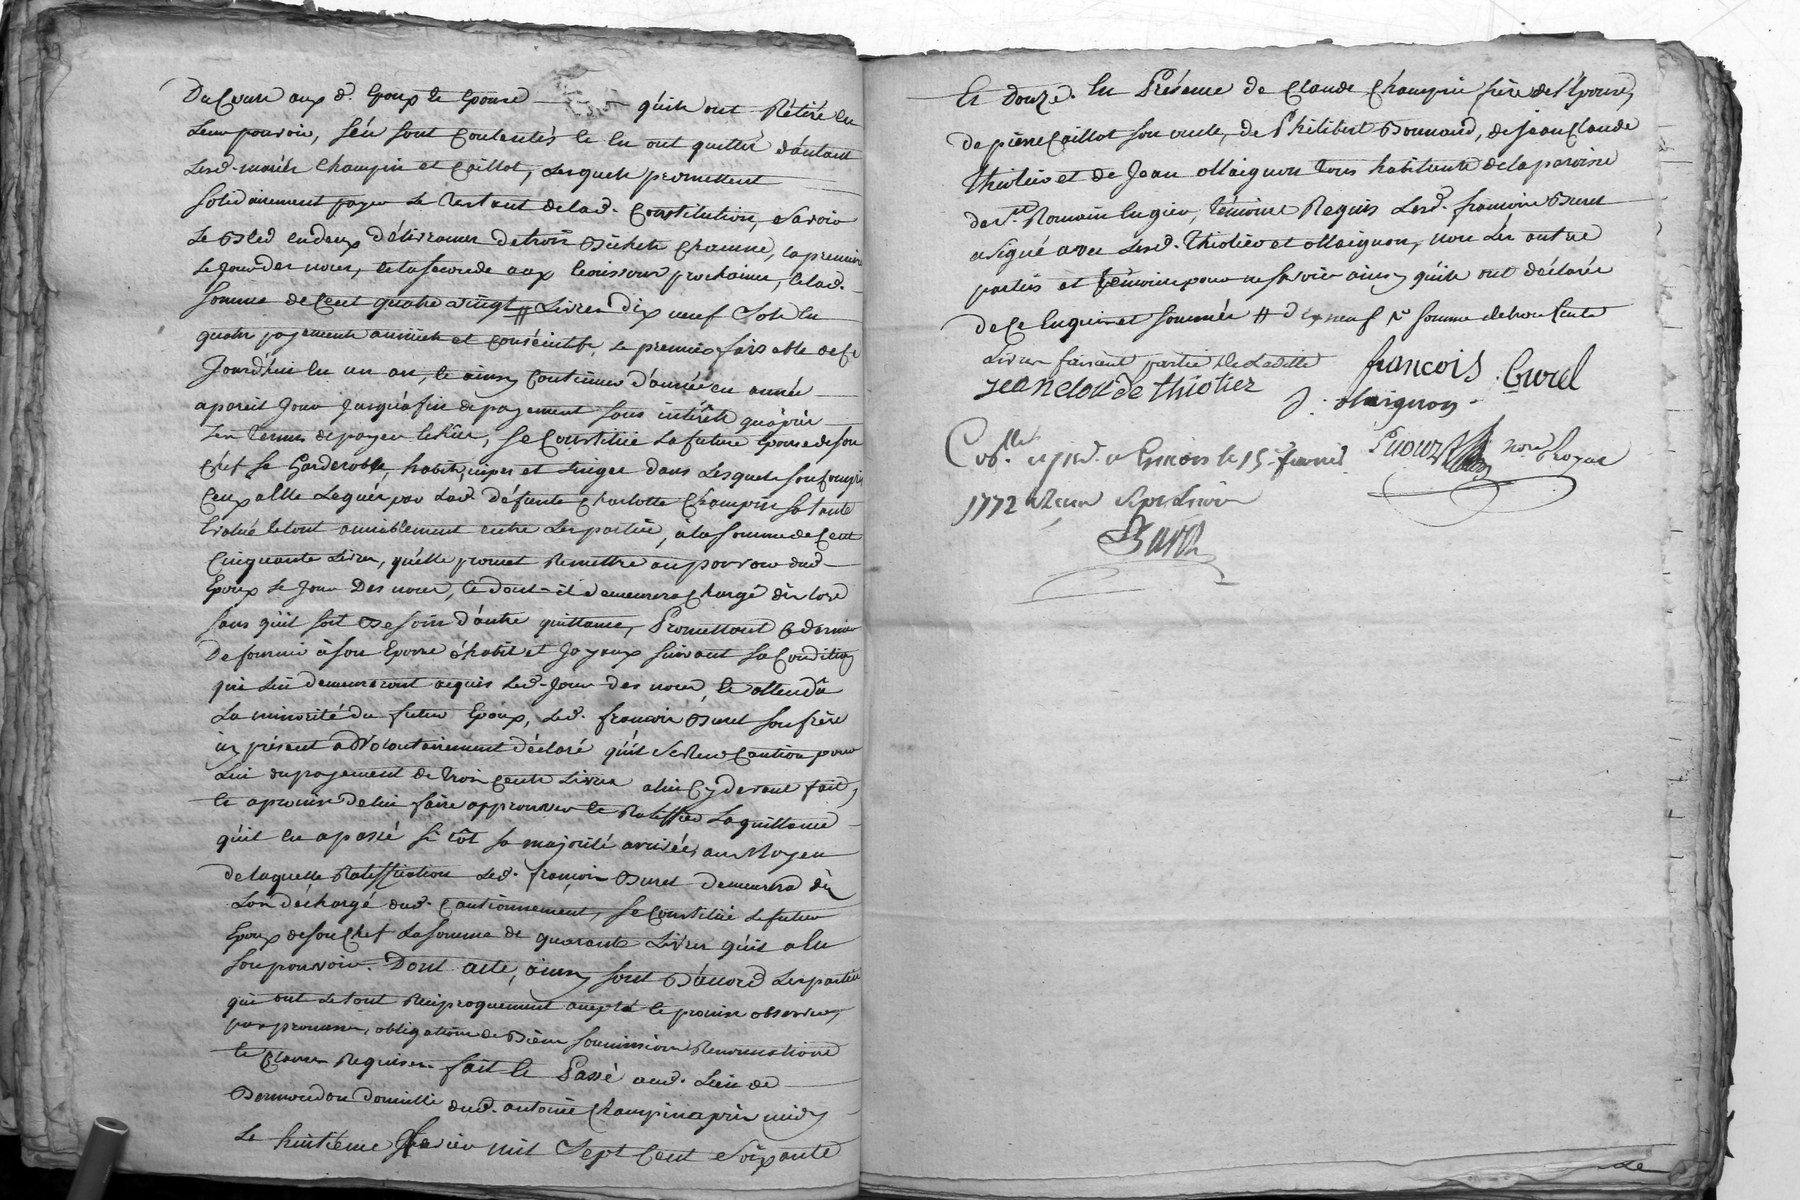 Du Cvure aux d. Epoux et Epouse qu'ils ont Rétiré en
Leur pouvoir, s'en sont Contentés et en ont quitté d'autant
Lesd. mariés Champin et Caillot, Lesquels promettent
Solidairement payer Le Restant de lad. Constitution, Savoir
Le Bled en deux délivrances de trois Bichets Chacune, La premiere
Le Jour des noces, et la seconde aux moissons prochaines, et lad.
Somme de Cent quatre vingt # Livres Dix neuf Sols en
quatre payements annuels et Consécutifs, Le premier faisable de Ce
Jourd'hui en un an, et ainsy Continuer d'année en année
a pareil Jour Jusqu'a fin de payement sans intérêts qu'après
Les Termes de payer échûs, Se Constitüe La future Epouse de son
Chef Se Garderobbe, habits, nipes et Linges dans Lesquels sont Compris
Ceux a Elle Legués par Lad. défunte Charlotte Champin Sa Tante
Evalué Le tout amiablement entre Les parties, à la Somme de Cent
Cinquante Livres, qu'elle promet Remettre au pouvoir dud.
Epoux Le Jour Des noces, et dont il demeurera Chargé dès Lors
Sans qu'il soit Besoin d'autre quittance, Promettant Ce dernier
De fournir à son Epouse habits et Joyaux suivant sa Condition
qui Lui demeureront acquis Led. Jour des noces, et attendû
La minorité du futur Epoux, Led. françois Burel son frère
icy présent a Volontairement déclaré qu'il Se Rend Caution pour
Lui du payement de Trois Cents Livres a lui Cy devant fait,
et a promis de lui faire approuver et Ratiffier La quittance
qu'il en a passé si tôt sa majorité arrivée, au Moyen
de laquelle Ratiffication Led. françois Burel Demeurera dès
Lors déchargé dud. Cautionnement, Se Constitüe Le futur
Epoux de son Chef La somme de quarante Livres qu'il a en
Son pouvoir. Dont acte, ainsy sont D'accord Les parties
qui ont Le tout Réciproquement accepté et promis observer,
par promesses, obligations de Biens soumissions Renonciations
et Clauses Requises. fait et Passé aud. Lieu de
domicille dud. antoine Champin après midy
Le huitième février mil Sept Cent Soixante
Et Douze. En Présence de Claude Champin frère de l'Epouse,
de pierre Caillot son oncle, de Philibert Bonnand, de Jean Claude
Thiolier et de Jean Maignon Tous habitants de la paroisse
de St. Romain en gier, Témoins Requis Led. françois Burel
a signé avec Lesd. Thiolier et Maignon, non Les autres
parties et Témoins pour ne savoir ainsy qu'ils ont déclarés
de Ce Enquis et sommés # dix neuf rs. somme de trois Cents
Livres faisant partie de Laditte
Jean claude thiolier françois Burel
J. Maignon
Collé. et jnd. a Givors le 15 fevrier
1772 Reçu Sept Livres
notre Royal